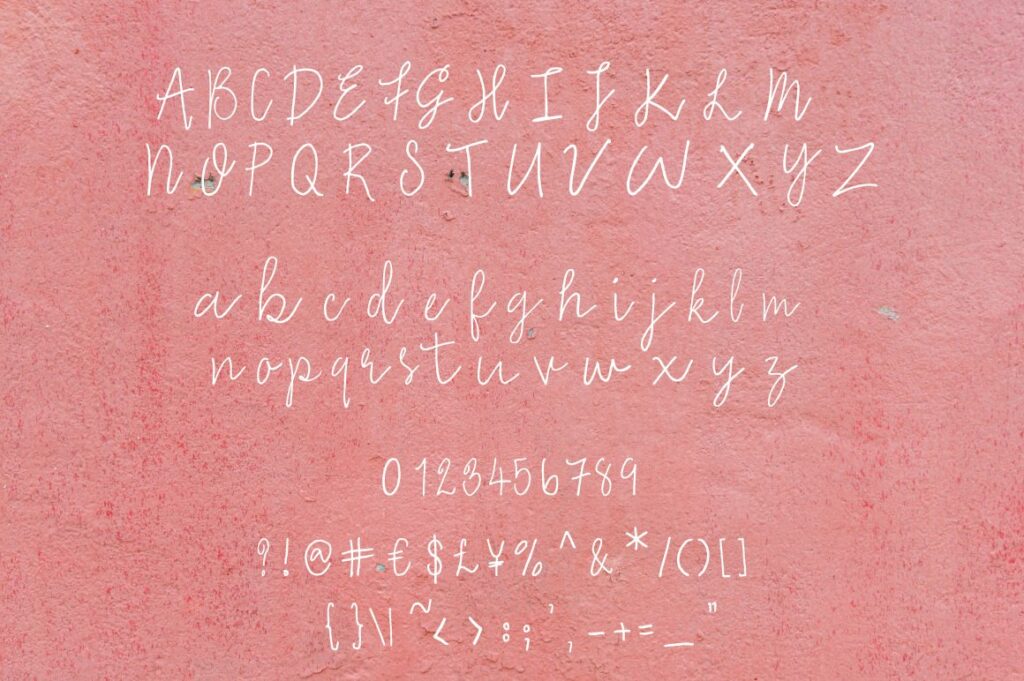 A B C D E F G H I J K L M
N O P Q R S T U V W X Y Z
a b c d e f g h i j k l m
n o p q r s t u v w x y z
0 1 2 3 4 5 6 7 8 9
? ! @ # € $ £ ¥ % ^ & * / ( ) [ ]
{ } \ | ~ < > : ; ' , - + = _ "